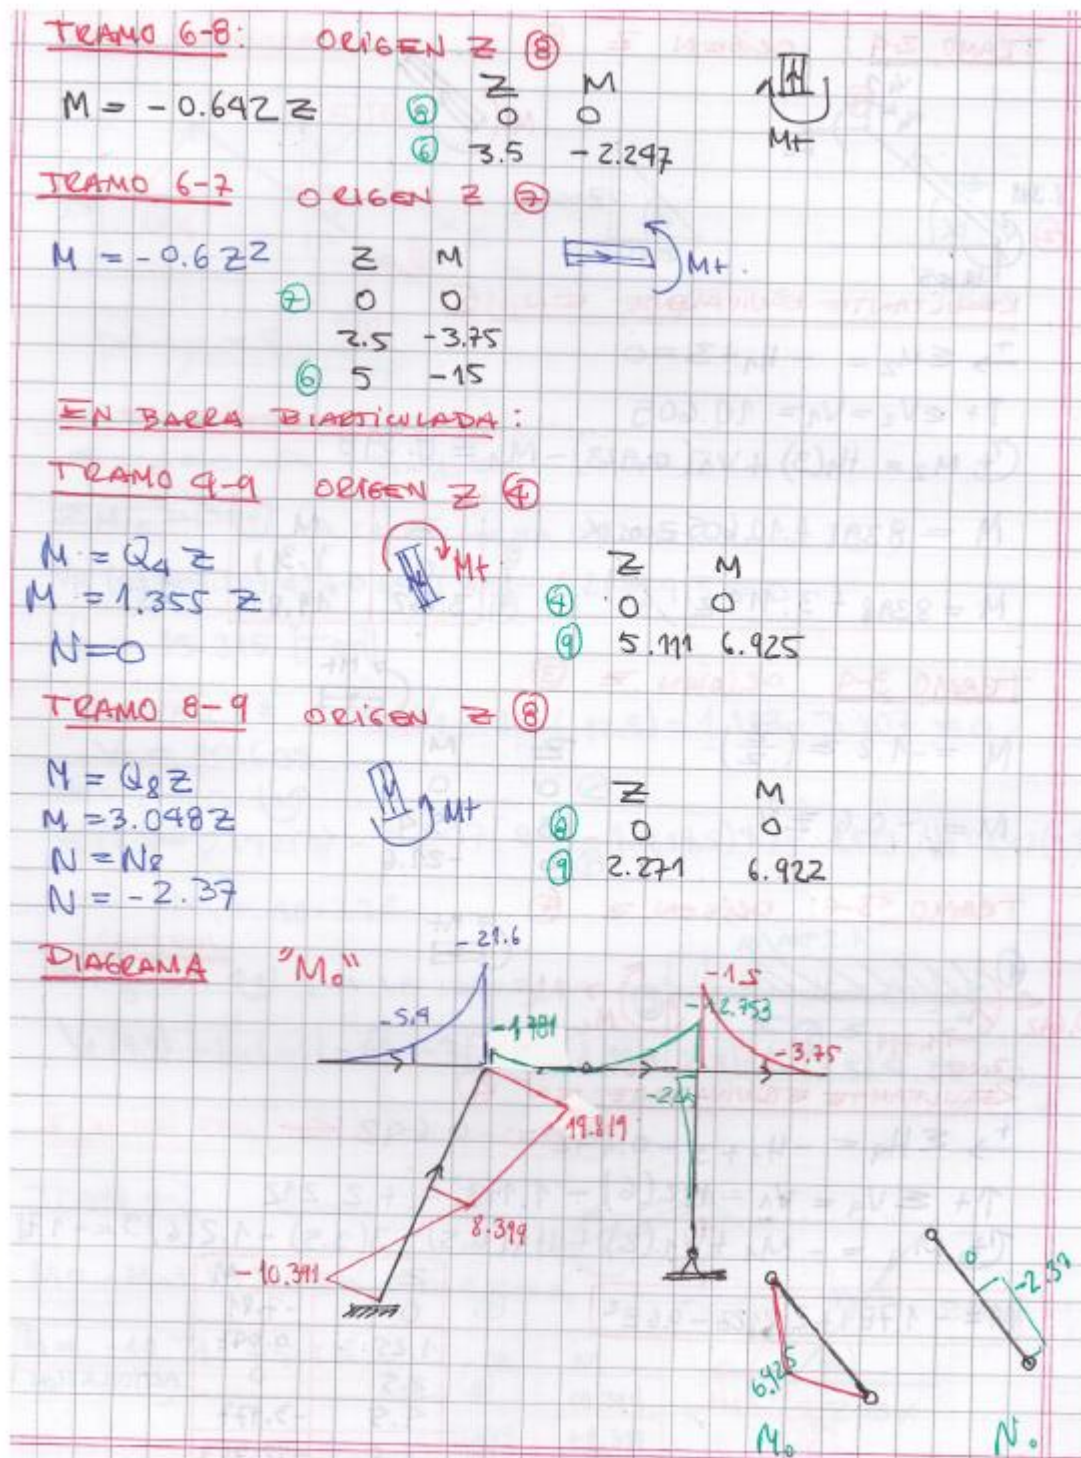 TRAMO 6-8: ORIGEN Z ⑧
Z M
M = -0.642 Z ⑧ 0 0
⑥ 3.5 -2.247
M+
TRAMO 6-7 ORIGEN Z ⑦
M = -0.6 Z2 Z M
M+.
⑦ 0 0
2.5 -3.75
⑥ 5 -15
EN BARRA BIARTICULADA:
TRAMO 4-9 ORIGEN Z ④
M = Q4 Z M+ Z M
M = 1.355 Z ④ 0 0
N=0 ⑨ 5.111 6.925
TRAMO 8-9 ORIGEN Z ⑧
M = Q8 Z M+ Z M
M = 3.048 Z ⑧ 0 0
N = N8 ⑨ 2.271 6.922
N = -2.37
DIAGRAMA "M0"
-21.6
-5.4
-1.781
-15
-12.753
-3.75
19.819
8.399
-10.391
0
-2.37
6.925
M0
N0